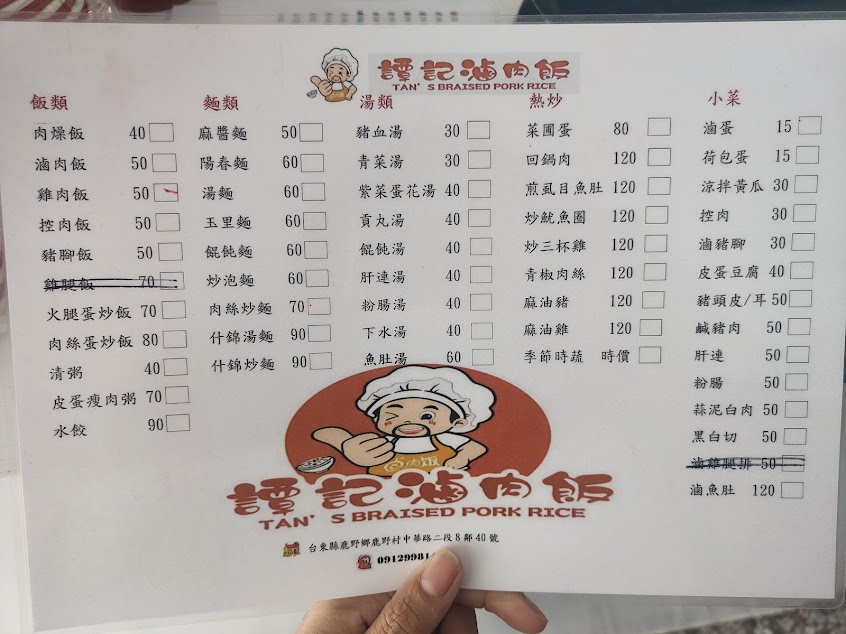 譚記滷肉飯
TAN'S BRAISED PORK RICE
飯類
肉燥飯 40
滷肉飯 50
雞肉飯 50
控肉飯 50
豬腳飯 50
雞腿飯 70
火腿蛋炒飯 70
肉絲蛋炒飯 80
清粥 40
皮蛋瘦肉粥 70
水餃 90
麵類
麻醬麵 50
陽春麵 60
湯麵 60
玉里麵 60
餛飩麵 60
炒泡麵 60
肉絲炒麵 70
什錦湯麵 90
什錦炒麵 90
湯類
豬血湯 30
青菜湯 30
紫菜蛋花湯 40
貢丸湯 40
餛飩湯 40
肝連湯 40
粉腸湯 40
下水湯 40
魚肚湯 60
熱炒
菜圃蛋 80
回鍋肉 120
煎虱目魚肚 120
炒魷魚圈 120
炒三杯雞 120
青椒肉絲 120
麻油豬 120
麻油雞 120
季節時蔬 時價
小菜
滷蛋 15
荷包蛋 15
涼拌黃瓜 30
控肉 30
滷豬腳 30
皮蛋豆腐 40
豬頭皮/耳 50
鹹豬肉 50
肝連 50
粉腸 50
蒜泥白肉 50
黑白切 50
滷雞腿排 50
滷魚肚 120
肉飯
譚記滷肉飯
TAN'S BRAISED PORK RICE
台東縣鹿野鄉鹿野村中華路二段8鄰40號
09129981